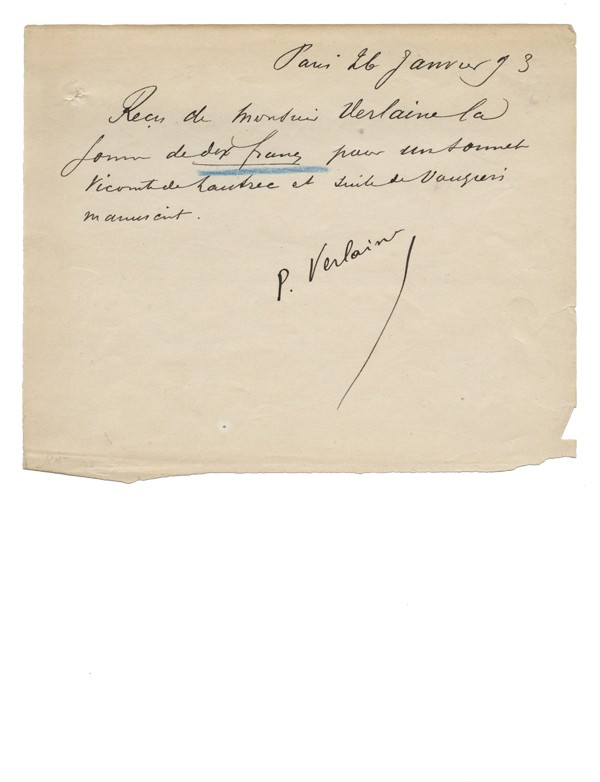 Paris 26 Janvier 93
Reçu de Monsieur Verlaine la
somme de dix francs pour un sonnet
Vicomte de Lautrec et suite de
manuscrit.
P. Verlaine